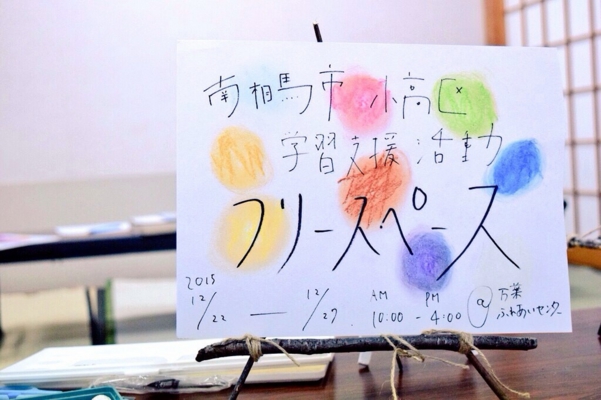 南相馬市 小高区
学習支援活動
フリースペース
2015
12/22 — 12/27 AM 10:00 - PM 4:00 @ 万葉ふれあいセンター